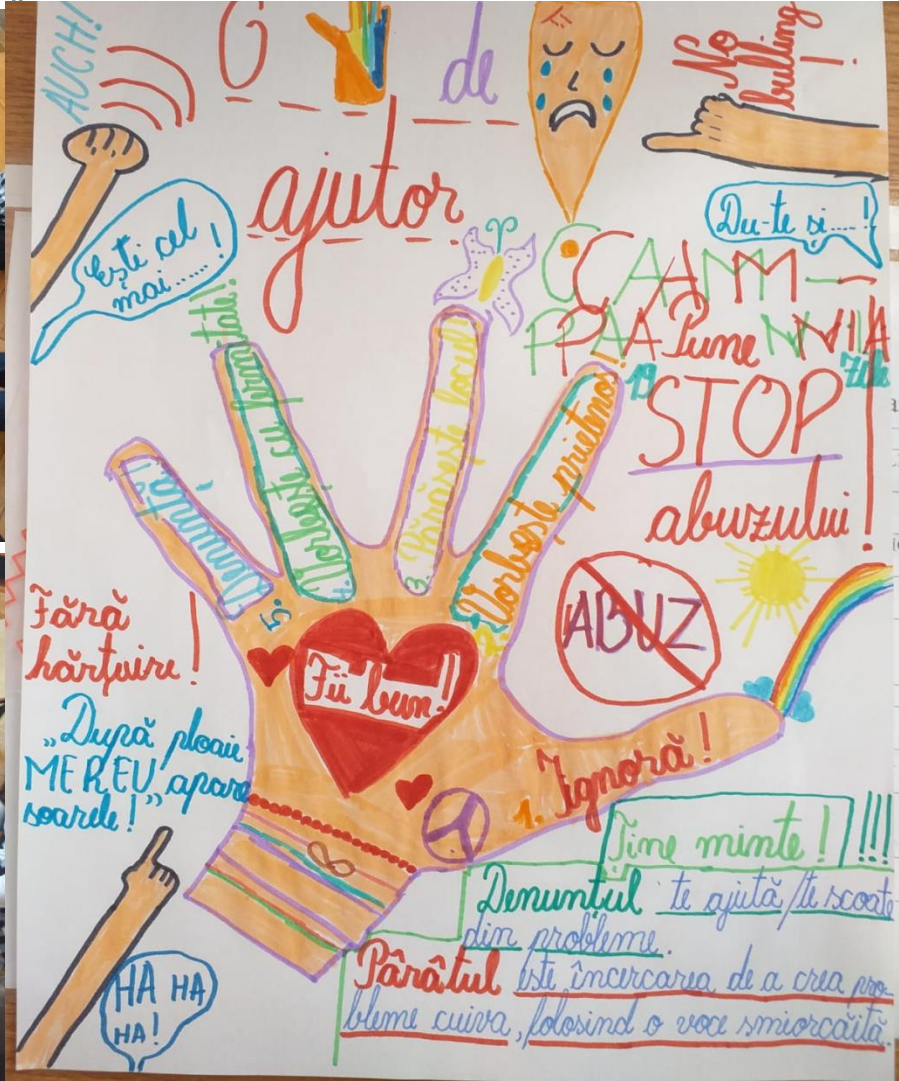 AUCH!
G
de
ajutor
No
bulling
!
Ești cel
mai......!
Du-te si.....!
CAM-
PANIA
19 Zile
Pune
STOP
abuzului!
ABUZ
5. Denunță!
4. Vorbește cu fermitate!
3. Părăsește locul
2. Vorbește prietenos!
1. Ignoră!
Fii bun!!
Fără
hărțuire!
„După ploaie
MEREU apare
soarele!”
HA HA
HA!
Ține minte! !!!
Denunțul te ajută/te scoate
din probleme.
Pârâtul este încercarea de a crea pro-
bleme cuiva, folosind o voce smiorcăită.